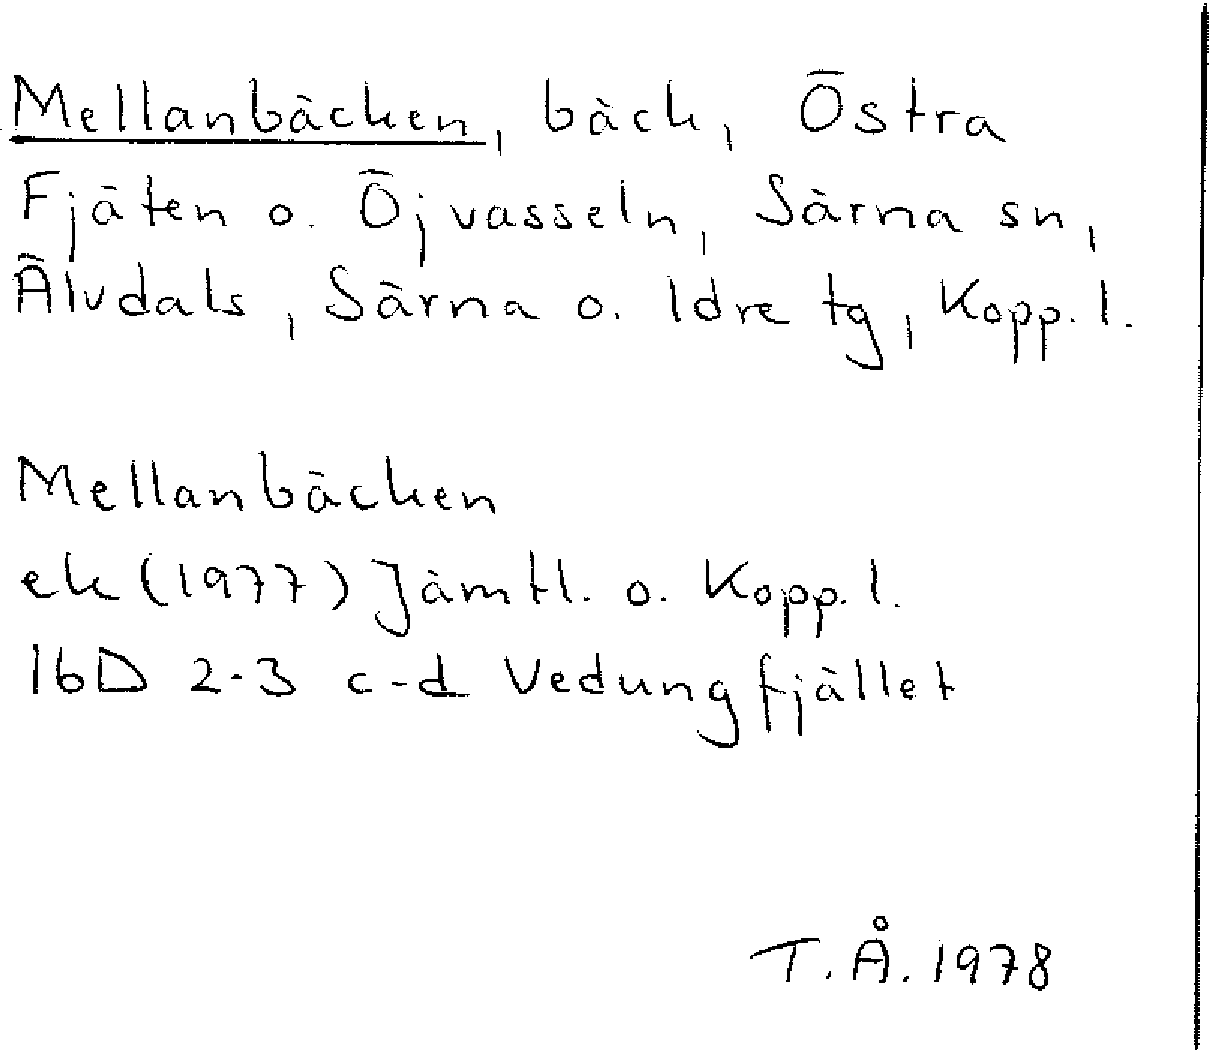 Mellanbäcken, bäck, Östra
Fjäten o. Öjvasseln, Särna sn,
Älvdals, Särna o. Idre tg, Kopp. l.
Mellanbäcken
ek (1977) Jämtl. o. Kopp. l.
16D 2-3 c-d Vedungfjället
T.Å. 1978